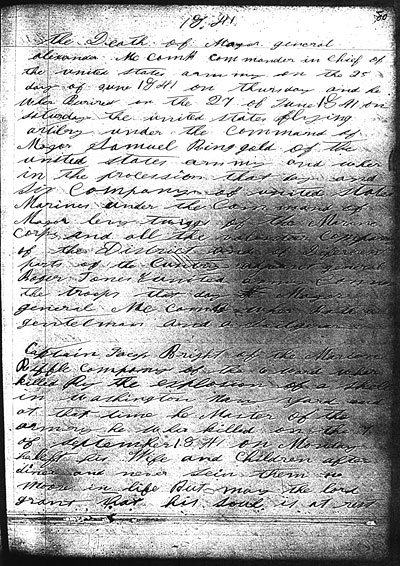 1841
the Death of Mayor general
Alexander Mc Comb Commander in Chief of
the united states army on the 25
day of June 1841 on thursday and he
wher Burired on the 27 of June 1841 on
Saturday the united states flying
artilery under the Command of
Mayor Samuel Ringgold of the
united states army and wher
in the procession that day and
six Companys of united States
Marines under the Command of
Mayor levy twiggs of the Marine
Corps and all the
of the District and of Diferent
parts of the Cuntry general
Roger Jones united
the troops that day Mayor
general Mc Comb wher
gentelman and a
Captain Bright of the Marion
Riffle Company of the 6 ward wher
killed By the explosion of a
in Washington Navy yard and
at that time he Master of the
armory he wher killed on the
of September 1841 on Monday
he left his Wife and Children after
diner and never sein them no
moore in life But may the lord
grant that his soul is at rest